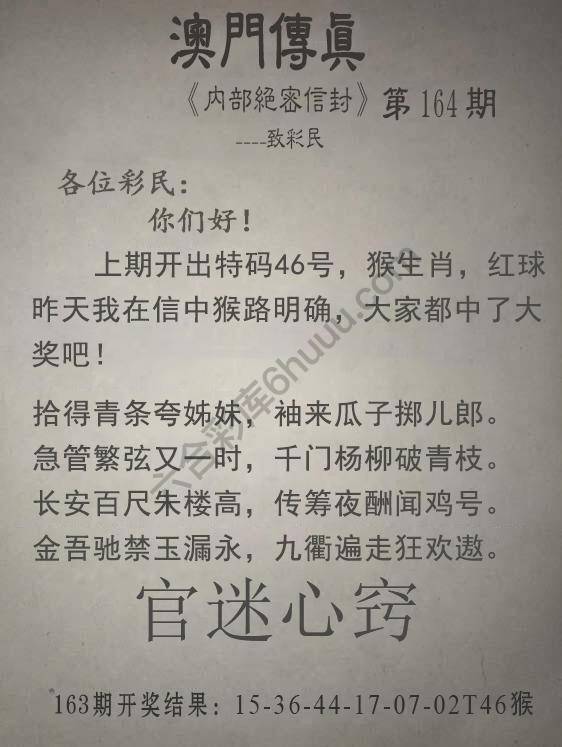 澳門傳眞
《内部絕密信封》第164期
----致彩民
各位彩民：
你们好！
上期开出特码46号，猴生肖，红球
昨天我在信中猴路明确，大家都中了大
奖吧！
拾得青条夸姊妹，袖来瓜子掷儿郎。
急管繁弦又一时，千门杨柳破青枝。
长安百尺朱楼高，传筹夜酬闻鸡号。
金吾驰禁玉漏永，九衢遍走狂欢遨。
官迷心窍
163期开奖结果：15-36-44-17-07-02T46猴
六合彩库6huuu.com